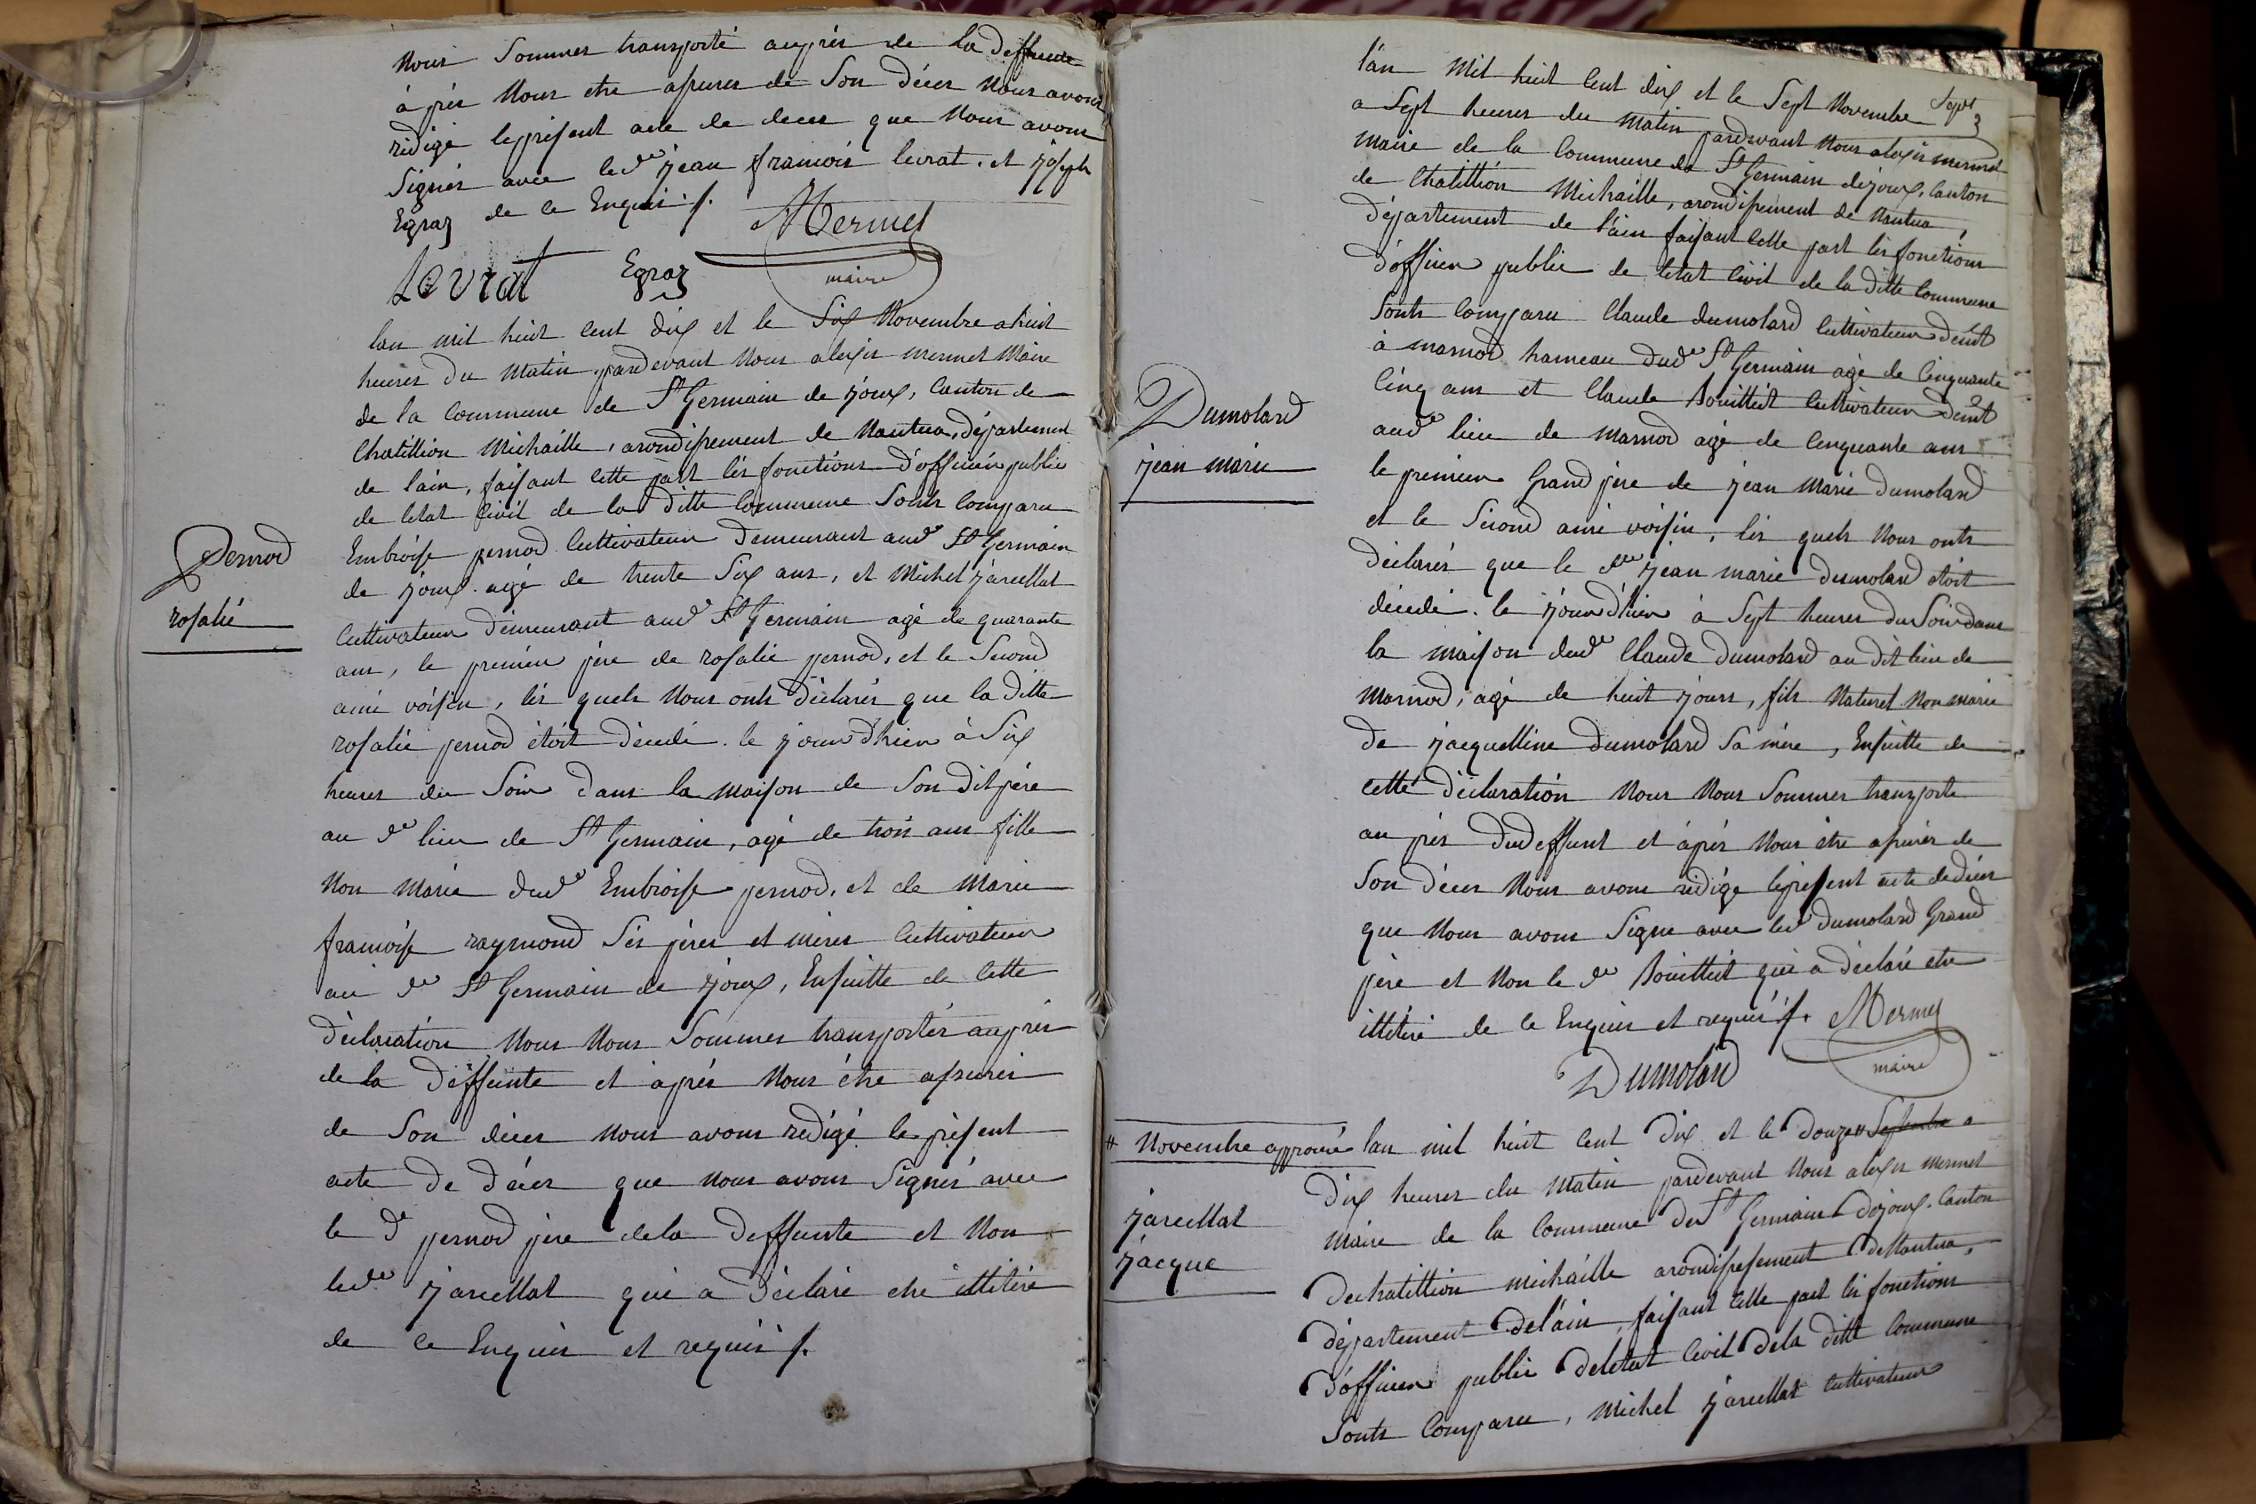 nous sommes transporté auprés de la deffunte
áprés nous etre assurer de son décès nous avons
rédigé le présent acte de deces que nous avons
signés avec led.e jean francois levrat et joseph
Egraz de ce Enquis ./.
Mermet
maire
Levrat
Egraz
lan mil huit cent dix et le six Novembre a huit
heures du matin pardevant nous alexis mermet maire
de la Commune de St Germain de joux, Canton de
Chatillion Michaille, arondissement de Nantua, département
de l'ain, faisant cette part lés fonctions d'officiér public
de letat Civil de la ditte Commune sonts Comparu
Pernod
rosalié
Embroise pernod Cultivateur demeurant aud.e St Germain
de joux agé de trente six ans, et Michel jarcellat
Cultivateur démeurant aud.e St Germain agé de quarante
ans, le premiér pére de rosalie pernod, et le second
ami voisin, lés quels nous onts déclarés que la ditte
rosalie pernod étoit décédé le jour d'hiér à six
heures du soir dans la maison de son dit pére
au d.e lieu de St Germain, agé de trois ans fille
non marié dud.e Embroise pernod, et de marie
francoise raymond sés péres et méres Cultivateur
au d.e St Germain de joux, Ensuitte de cette
déclaration nous nous sommes transportés auprés
de la déffunte et áprés nous étre assurés
de son décès nous avons rédigé le présent
acte de décès que nous avons signés avec
le d.e pernod pére de la deffunte et non
led.e jarcellat qui a déclaré etre illitéré
de ce Enquis et requis ./.
l'an mil huit cent dix et le sept Novembre
a sept heures du matin pardevant nous alexis mermet
maire de la Commune de St Germain dejoux, Canton
de Chatillion Michaille, arondissement de Nantua,
département de l'ain faisant cette part lés fonctions
d'officiér public de letat Civil de la ditte Commune
sonts Comparu Claude dumolard Cultivateur demt
à marnod hameau dud.e St Germain agé de Cinquante
Cinq ans et Claude Bouilliet Cultivateur demt
aud.e lieu de marnod agé de cinquante ans
Dumolard
jean marie
le premier Grand pére de jean Marie dumolard
et le second ami voisin, lés quels nous onts
déclarés que le d.e jean marie dumolard étoit
décédé le jour d'hiér à sept heures du soir dans
la maison dud.e Claude dumolard au dit lieu de
marnod, agé de huit jours, fils naturel non marié
de jacquelline dumolard sa mére, Ensuitte de
cette déclaration nous nous sommes transporté
au prés dudeffunt et áprés nous étre assurés de
son décès nous avons rédigé le présent acte dedécès
que nous avons signé avec led dumolard Grand
pére et non le d.e Bouilliet qui a déclaré etre
illitéré de ce Enquis et requis ./.
Mermet
maire
Dumolard
# Novembre approuvé
lan mil huit cent dix et le douze # Septembre a
dix heures du matin pardevant nous alexis mermet
maire de la Commune de St Germain Dejoux Canton
jarcellat
jacque
dechatillion michaille arondissesement deNantua,
département del'ain, faisant cette part lés fonctions
d'officiér public deletat Civil dela ditte Commune
sonts Comparu, michel jarcellat Cultivateur